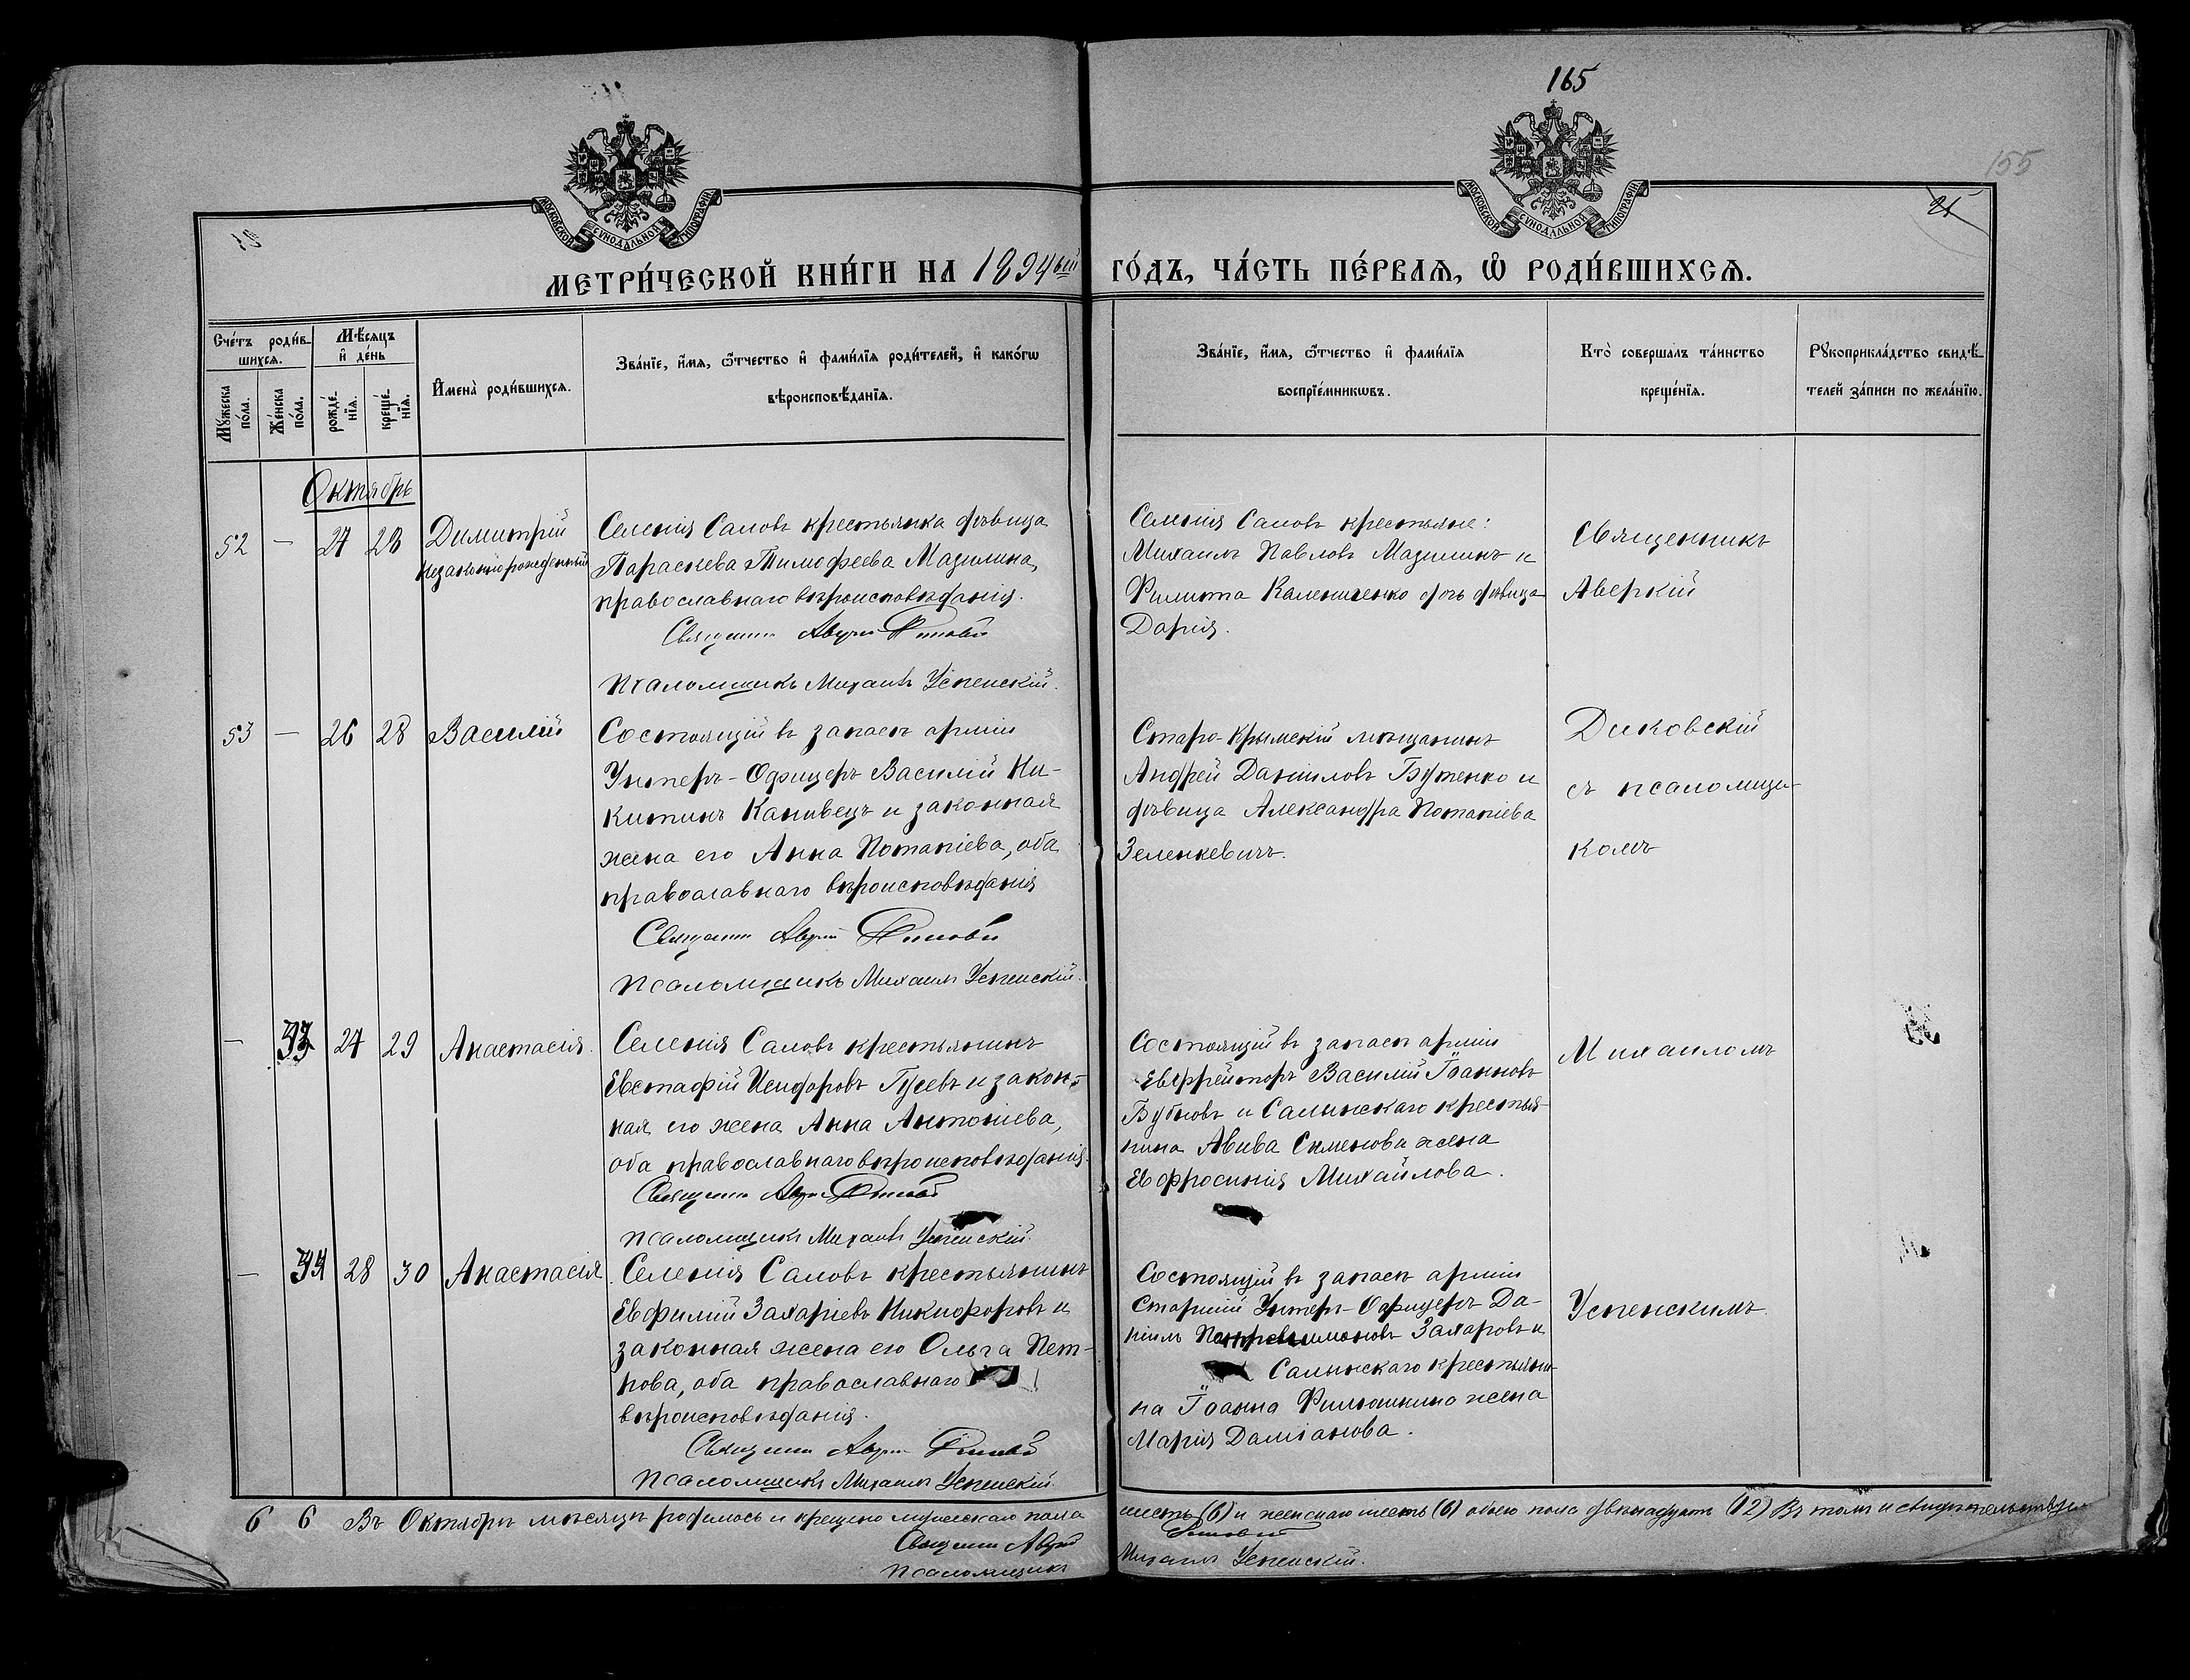 165
155
МОСКОВСКОЙ СУНОДАЛЬНОЙ ТИПОГРАФІИ
МОСКОВСКОЙ СУНОДАЛЬНОЙ ТИПОГРАФІИ
МЕТРИ́ЧЕСКОЙ КНИ́ГИ НА 1894ый ГО́ДЪ, ЧА́СТЬ ПЕ́РВАѦ, Ѡ҆ РОДИ́ВШИХСѦ.
Сче́тъ роди́в-
шихсѧ.
Мꙋ́жеска по́ла.
Же́нска по́ла.
Мѣ́сѧцъ
и҆ де́нь
рожде́-
нїѧ.
креще́-
нїѧ.
И҆мена̀ роди́вшихсѧ.
Зва́нїе, и҆́мѧ, ѻ҆́тчество и҆ фами́лїѧ роди́телей, и҆ како́гѡ
вѣроисповѣ́данїѧ.
Зва́нїе, и҆́мѧ, ѻ҆́тчество и҆ фами́лїѧ
воспрїе́мникѡвъ.
Кто̀ соверша́лъ та́инство
креще́нїѧ.
Рꙋкоприкла́дство свидѣ́-
телей за́писи по жела́нїю.
Октябрь
52 — 27 28 Димитрій
незаконнорожденный
Селенія Саловъ крестьянка дѣвица
Параскева Тимофеева Мазилина,
православнаго вѣроисповѣданія.
Священникъ Аверкій Диковскій
Псаломщикъ Михаилъ Успенскій.
Селенія Саловъ крестьяне:
Михаилъ Павловъ Мазилинъ и
Филиппа Калениченко дочь дѣвица
Дарія.
Священникъ
Аверкій
53 — 26 28 Василій
Состоящій въ запасѣ арміи
Унтеръ-Офицеръ Василій Ни-
китинъ Канивецъ и законная
жена его Анна Потапіева, оба
православнаго вѣроисповѣданія
Священникъ Аверкій Диковскій
Псаломщикъ Михаилъ Успенскій.
Старо-Крымскій мѣщанинъ
Андрей Даніиловъ Бутенко и
дѣвица Александра Потапіева
Зеленкевичъ.
Диковскій
съ псаломщи-
комъ
— 33 27 29 Анастасія.
Селенія Саловъ крестьянинъ
Евстафій Исидоровъ Гусевъ и закон-
ная его жена Анна Антоніева,
оба православнаго вѣроисповѣданія.
Священникъ Аверкій Диковскій
Псаломщикъ Михаилъ Успенскій.
Состоящій въ запасѣ арміи
Евфрейторъ Василій Іоанновъ
Бубновъ и Салынскаго крестья-
нина Авива Сименова жена
Евфросинія Михайлова.
Михаиломъ
— 34 28 30 Анастасія
Селенія Саловъ крестьянинъ
Евфимій Захаріевъ Никифоровъ и
законная жена его Ольга Пет-
рова, оба православнаго
вѣроисповѣданія.
Священникъ Аверкій Диковскій
Псаломщикъ Михаилъ Успенскій.
Состоящій въ запасѣ арміи
Старшій Унтеръ-Офицеръ Да-
ніилъ Захаровъ и
Салынскаго крестьяни-
на Іоанна Филюшкина жена
Марія Даміанова.
Успенскимъ.
6 6 Въ Октябрѣ мѣсяцѣ родилось и крещено мужескаго пола шесть (6) и женскаго шесть (6) обоего пола двѣнадцать (12) Въ томъ и свидѣтельствуемъ
Священникъ Аверкій Диковскій
Псаломщикъ Михаилъ Успенскій.